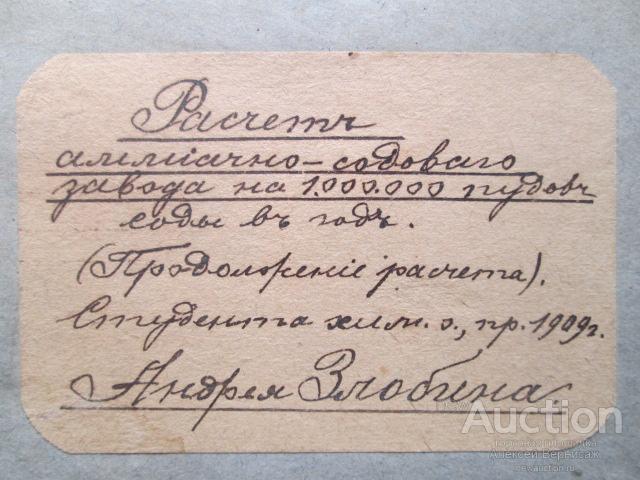 Расчетъ
амміачно-содоваго
завода на 1.000.000 пудовъ
соды въ годъ.
(Продолженіе расчета).
Студента хим. о., пр. 1909 г.
Андрея Злобина
Auction
Алексей Вернисаж
newauction.ru